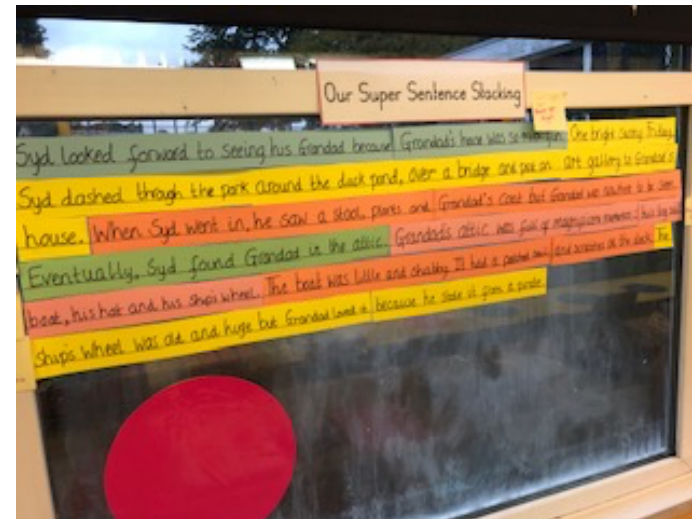 Our Super Sentence Stacking
Syd looked forward to seeing his Grandad because Grandad's house was so much fun. One bright sunny Friday,
Syd dashed through the park around the duck pond, over a bridge and past an art gallery to Grandad's
house. When Syd went in, he saw a stool, plants and Grandad's coat but Grandad was nowhere to be seen.
Eventually, Syd found Grandad in the attic. Grandad's attic was full of his
boat, his hat and his ship's wheel. The boat was little and shabby. It had a painted and scratches on the deck. The
ship's wheel was old and huge but Grandad loved it because he stole it from a pirate.